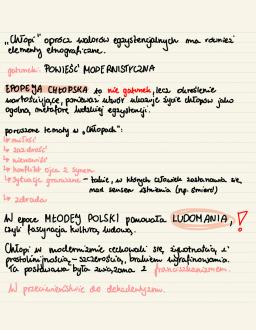 „Chłopi" oprócz walorów egzystencjalnych ma również
elementy etnograficzne.
gatunek: POWIEŚĆ MODERNISTYCZNA
EPOPEJA CHŁOPSKA to nie gatunek, lecz określenie
wartościujące, ponieważ utwór ukazuje życie chłopów jako
ogólną metaforę ludzkiej egzystencji.
poruszone tematy w „Chłopach":
↳ miłość
↳ zazdrość
↳ nienawiść
↳ konflikt ojca z synem
↳ sytuacje graniczne - takie, w których człowiek zastanawia się,
nad sensem istnienia (np. śmierć)
↳ zdrada
W epoce MŁODEJ POLSKI panowała LUDOMANIA, !
czyli fascynacja kulturą ludową.
Chłopi w modernizmie cechowali się, żywotnością i
prostolinijnością - szczerością, brakiem wyrafinowania.
Ta postawa była związana z franciszkanizmem.
W przeciwieństwie do dekadentyzmu.